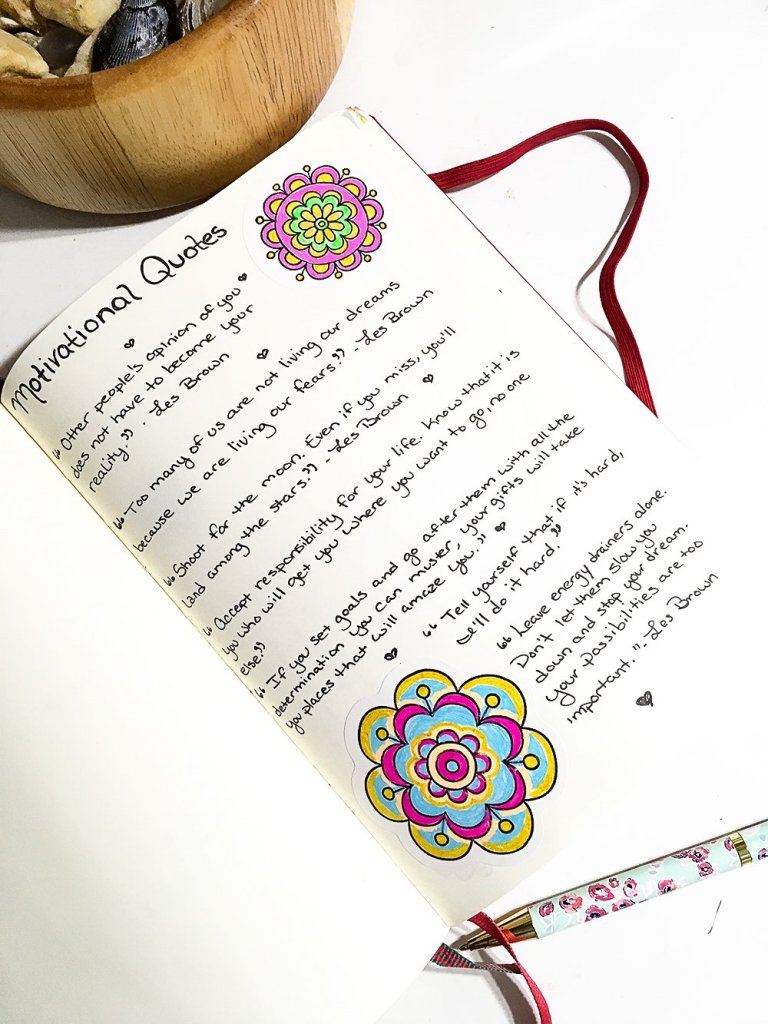 Motivational Quotes
"Other people's opinion of you
does not have to become your
reality." - Les Brown
"Too many of us are not living our dreams
because we are living our fears." - Les Brown
"Shoot for the moon. Even if you miss, you'll
land among the stars." - Les Brown
"Accept responsibility for your life. Know that it is
you who will get you where you want to go, no one
else."
"If you set goals and go after them with all the
determination you can muster, your gifts will take
you places that will amaze you."
"Tell yourself that if it's hard,
I'll do it hard."
"Leave energy drainers alone.
Don't let them slow you
down and stop your dream.
Your possibilities are too
important." - Les Brown